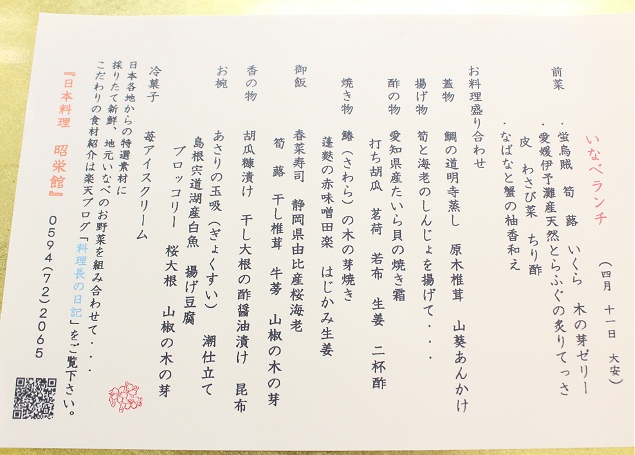 いなべランチ
(四月 十一日 大安)
前菜
・蛍烏賊 筍 蕗 いくら 木の芽ゼリー
・愛媛伊予灘産天然とらふぐの炙りてっさ
皮 わさび菜 ちり酢
・なばなと蟹の柚香和え
お料理盛り合わせ
蓋物 鯛の道明寺蒸し 原木椎茸 山葵あんかけ
揚げ物 筍と海老のしんじょを揚げて・・・
酢の物 愛知県産たいら貝の焼き霜
打ち胡瓜 茗荷 若布 生姜 二杯酢
焼き物 鰆(さわら)の木の芽焼き
蓬麩の赤味噌田楽 はじかみ生姜
御飯 春菜寿司 静岡県由比産桜海老
筍 蕗 干し椎茸 牛蒡 山椒の木の芽
香の物 胡瓜糠漬け 干し大根の酢醤油漬け 昆布
お椀 あさりの玉吸(ぎょくすい) 潮仕立て
島根宍道湖産白魚 揚げ豆腐
ブロッコリー 桜大根 山椒の木の芽
冷菓子 苺アイスクリーム
日本各地からの特選素材に
採りたて新鮮、地元いなべのお野菜を組み合わせて・・・
こだわりの食材紹介は楽天ブログ「料理長の日記」をご覧下さい。
『日本料理 昭栄館』 0594(72)2065